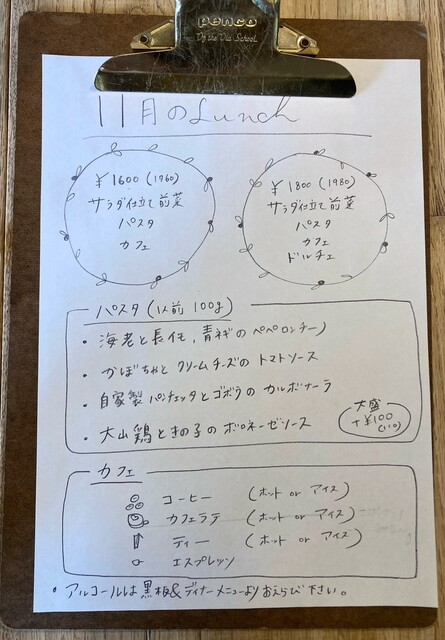 penco
By the Old School.
11月のLunch
¥1600 (1760)
サラダ仕立て前菜
パスタ
カフェ
¥1800 (1980)
サラダ仕立て前菜
パスタ
カフェ
ドルチェ
パスタ (1人前 100g)
・海老と長芋、青ネギのペペロンチーノ
・かぼちゃとクリームチーズのトマトソース
・自家製パンチェッタとゴボウのカルボナーラ
・大山鶏ときの子のボロネーゼソース
大盛
+¥100
(110)
カフェ
コーヒー (ホット or アイス)
カフェラテ (ホット or アイス)
ティー (ホット or アイス)
エスプレッソ
・アルコールは黒板&ディナーメニューよりおえらび下さい。